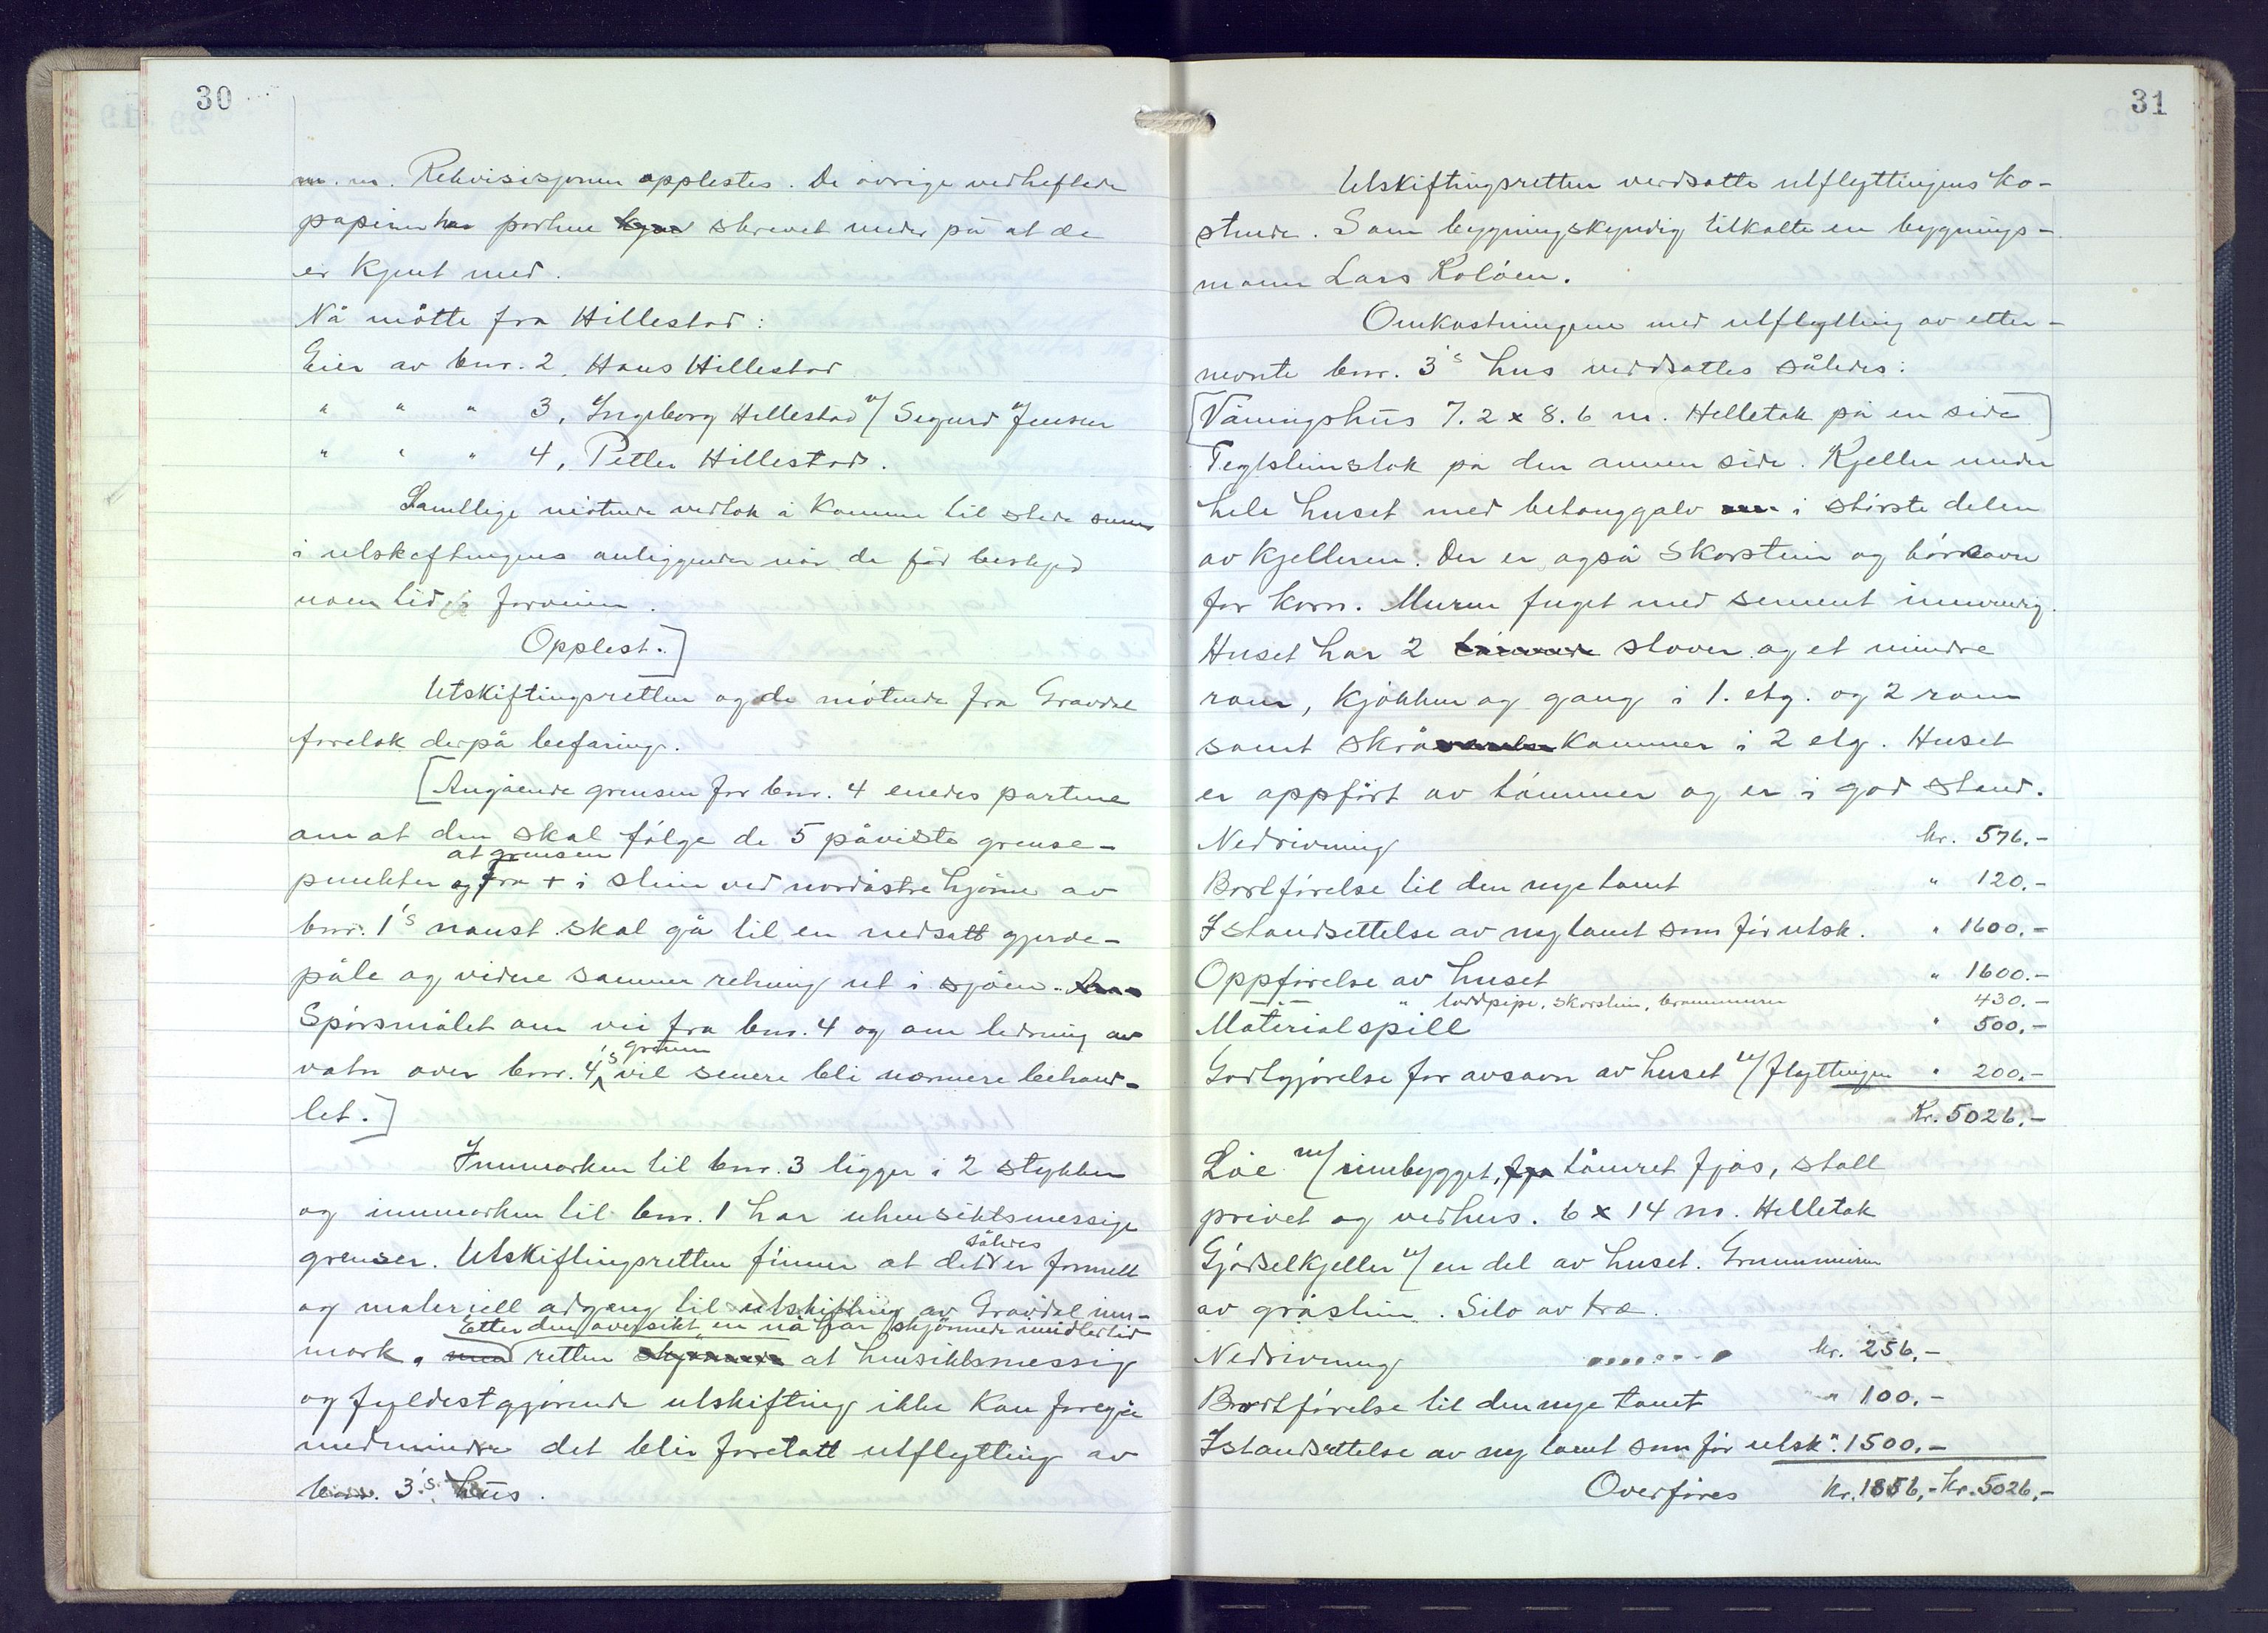 30
m.m. Rekvisisjonen opplestes. De øvrige vedheftede
papirer har partene skrevet under på at de
er kjent med.
Nå møtte fra Hillestad:
Eier av bnr. 2, Hans Hillestad
" " " 3, Ingeborg Hillestad v/ Sigurd Jensen
" " " 4, Petter Hillestad.
Samtlige møtende vedtok å komme til stede senere
i utskiftingens anliggender når de får beskjed
noen tid i forveien.
Opplest.]
Utskiftingsretten og de møtende fra Gravdal
foretok derpå befaring.
[Angående grensen for bnr. 4 enedes partene
om at den skal følge de 5 påviste grense-
at grensen
punkter og fra + i stein ved nordøstre hjørne av
bnr. 1's naust skal gå til en nedsatt gjerde-
påle og videre samme retning ut i sjøen.
Spørsmålet om vei fra bnr. 4 og om ledning av
grunn
vatn over bnr. 4's vil senere bli nærmere behand-
let.]
Innmarken til bnr. 3 ligger i 2 stykker
og innmarken til bnr. 1 har uhensiktsmessige
således
grenser. Utskiftingsretten finner at det er formell
og materiell adgang til utskifting av Gravdal inn-
Etter den oversikt en nå har skjønnede imidlertid
mark. retten at hensiktsmessig
og fyldestgjørende utskifting ikke kan foregå
medmindre det blir foretatt utflytting av
bnr. 3's hus.
31
Utskiftingsretten verdsatte utflyttingens ko-
stende. Som bygningskyndig tilkalte en bygnings-
mann Lars Koløen.
Omkostningene med utflytting av etter-
nevnte bnr. 3's hus verdsattes således:
[Våningshus 7.2 x 8.6 m. Helletak på en side]
Teglsteinstak på den annen side. Kjeller under
hele huset med betonggolv i største delen
av kjelleren. Der er også skorstein og
for korn. Muren fuget med sement innvendig.
Huset har 2 stover og et mindre
rom, kjøkken og gang i 1. etg. og 2 rom
samt skråkammer i 2 etg. Huset
er oppført av tømmer og er i god stand.
Nedrivning kr. 576.-
Bortførelse til den nye tomt " 120.-
Istandsettelse av ny tomt som før utsk. " 1600.-
Oppførelse av huset " 1600.-
-"- " lordpipe, skorstein, brannmuren 430.-
Materialspill " 500.-
Godtgjørelse for avsavn av huset u/ flyttingen " 200.-
Kr. 5026.-
Løe m/ innbygget, tømret fjøs, stall
privet og vedhus. 6 x 14 m. Helletak
Gjødselkjeller u/ en del av huset. Grunnmuren
av gråstein. Silo av tre.
Nedrivning kr. 256.-
Bortførelse til den nye tomt " 100.-
Istandsettelse av ny tomt som før utsk. " 1500.-
Overføres kr. 1856,- kr. 5026,-